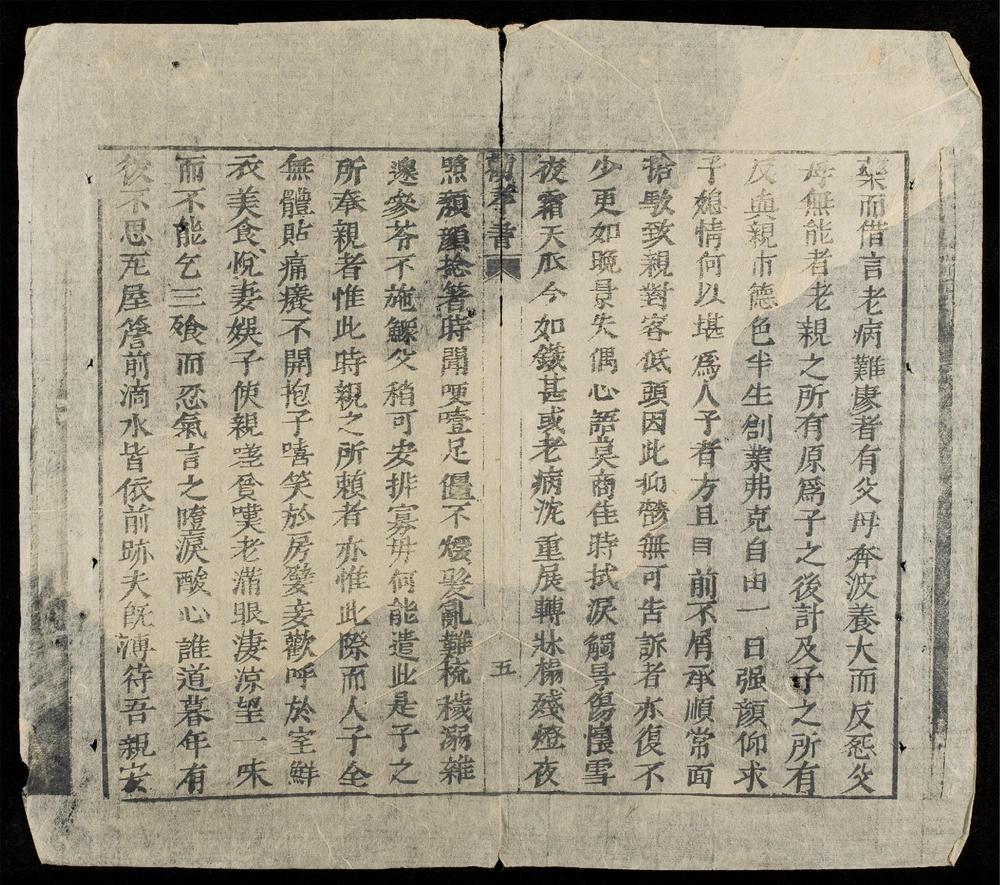 業而借言老病難康者有父母奔波養大而反怨父
母無能者老親之所有原爲子之後計及子之所有
反與親市德色半生創業弗克自由一日强顔仰求
子媳情何以堪爲人子者方且目前不屑承順常面
搶駁致親對客低頭因此抑鬱無可告訴者亦復不
少更如晚景失偶心語莫商佳時拭淚觸景傷懷雪
夜霜天瓜今如鐡甚或老病沈重展轉牀榻殘燈夜
照頽顔捻箸時聞哽噎足僵不煖髮亂難梳穢溺雜
邊參苓不施鰥父稍可安排寡母何能遣此是子之
所奉親者惟此時親之所賴者亦惟此際而人子全
無體貼痛癢不開抱子嘻笑於房嬖妾歡呼於室鮮
衣美食悅妻娱子使親嗟貧嘆老滿眼淒涼望一味
而不能乞三飱而忍氣言之墮淚酸心誰道暮年有
後不思瓦屋簷前滴水皆依前跡夫旣薄待吾親安
勸孝書
五